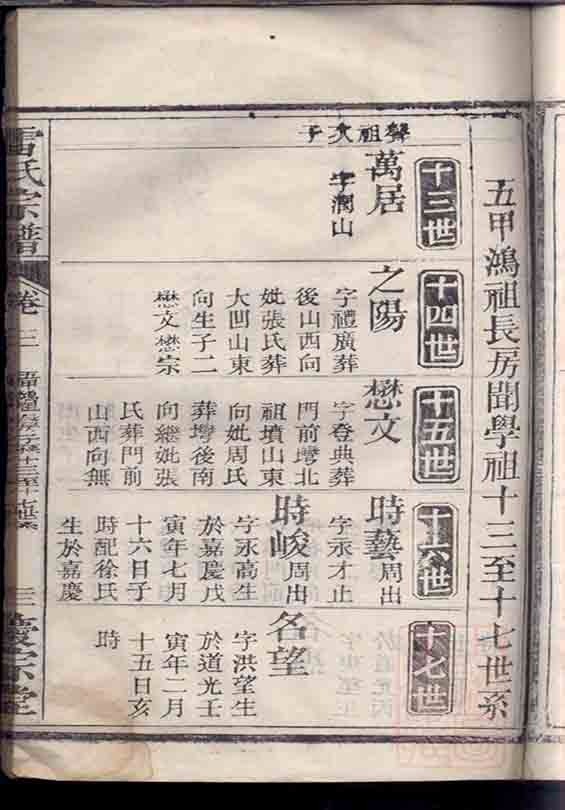 五甲鴻祖長房聞學祖十三至十七世系
十三世
十四世
十五世
十六世
十七世
萬居
字潤山
之陽
字禮廣葬
後山西向
妣張氏葬
大凹山東
向生子二
懋文懋宗
懋文
字登典葬
門前塆北
祖墳山東
向妣周氏
葬塆後南
向繼妣張
氏葬門前
山西向無
時藝周出
字永才止
時峻周出
字永高生
於嘉慶戊
寅年七月
十六日子
時配徐氏
生於嘉慶
名望
字洪望生
於道光壬
寅年二月
十五日亥
時
氏宗譜
卷三